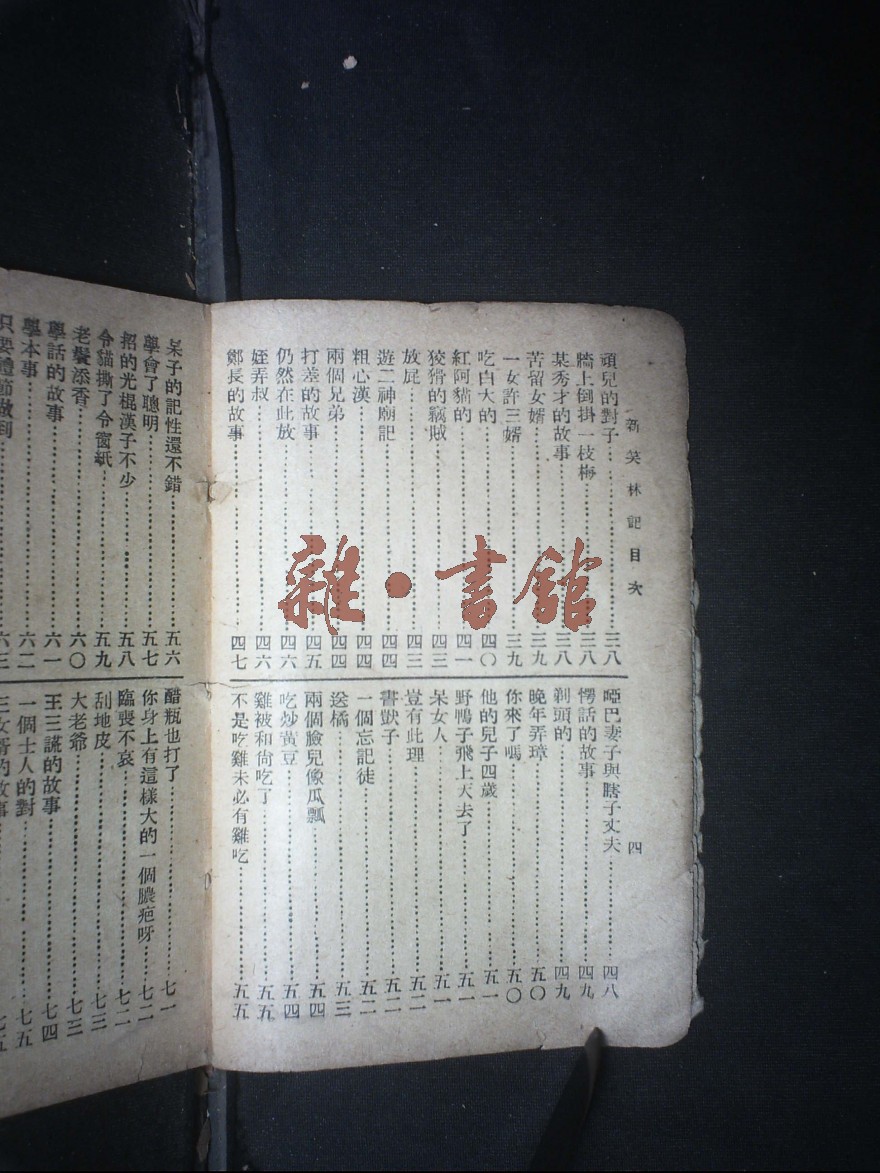 新笑林記目次
四
頑兒的對子……三八
牆上倒掛一枝梅……三八
某秀才的故事……三八
苦留女婿……三九
一女許三婿……三九
吃白大的……四〇
紅阿貓的……四一
狡猾的竊賊……四三
放屁……四三
遊二神廟記……四四
粗心漢……四四
兩個兄弟……四四
打差的故事……四五
仍然在此放……四六
姪弄叔……四六
鄭長的故事……四七
啞巴妻子與瞎子丈夫……四八
愕話的故事……四九
剃頭的……四九
晚年弄璋……五〇
你來了嗎……五〇
他的兒子四歲……五一
野鴨子飛上天去了……五一
呆女人……五一
豈有此理……五二
書獃子……五二
一個忘記徒……五二
送橘……五三
兩個臉兒像瓜瓢……五四
吃炒黃豆……五四
雞被和尙吃了……五五
不是吃雞未必有雞吃……五五
呆子的記性還不錯……五六
學會了聰明……五七
招的光棍漢子不少……五八
令貓撕了令窗紙……五九
老鬢添香……六〇
學話的故事……六一
學本事……六二
只要禮節做到……六三
醋瓶也打了……七一
你身上有這樣大的一個膿疤呀……七二
臨喪不哀……七二
刮地皮……七三
大老爺……七三
王三謊的故事……七四
一個士人的對……七五
三女婿的故事……七五
雜·書館